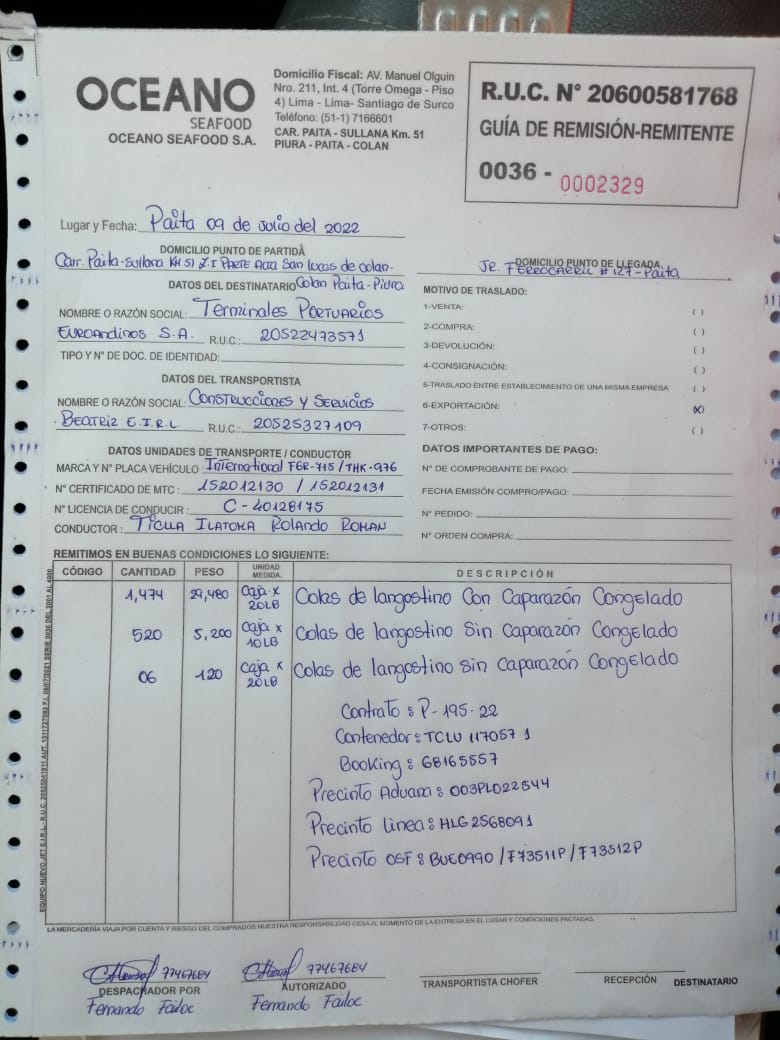 OCEANO
SEAFOOD
OCEANO SEAFOOD S.A.
Domicilio Fiscal: AV. Manuel Olguin
Nro. 211, Int. 4 (Torre Omega - Piso
4) Lima - Lima- Santiago de Surco
Teléfono: (51-1) 7166601
CAR. PAITA - SULLANA Km. 51
PIURA - PAITA - COLAN
R.U.C. N° 20600581768
GUÍA DE REMISIÓN-REMITENTE
0036 - 0002329
Lugar y Fecha: Paita 09 de Julio del 2022
DOMICILIO PUNTO DE PARTIDA
Carr. Paita-Sullana KM 51 Z.I PARTE Alta San lucas de colan.
Colan Paita-Piura
DOMICILIO PUNTO DE LLEGADA
JR. FERROCARRIL # 127-Paita
DATOS DEL DESTINATARIO
NOMBRE O RAZÓN SOCIAL: Terminales Portuarios
Euroandinos S.A. R.U.C.: 20522473571
TIPO Y N° DE DOC. DE IDENTIDAD:
DATOS DEL TRANSPORTISTA
NOMBRE O RAZÓN SOCIAL: Construcciones y Servicios
Beatriz E.I.R.L R.U.C.: 20525327109
DATOS UNIDADES DE TRANSPORTE / CONDUCTOR
MARCA Y N° PLACA VEHÍCULO: International F6R-715/THK-976
N° CERTIFICADO DE MTC: 152012130 / 152012131
N° LICENCIA DE CONDUCIR: C-40128175
CONDUCTOR: Ticlla Ilatoma Rolando Roman
MOTIVO DE TRASLADO:
1-VENTA: ( )
2-COMPRA: ( )
3-DEVOLUCIÓN: ( )
4-CONSIGNACIÓN: ( )
5-TRASLADO ENTRE ESTABLECIMIENTO DE UNA MISMA EMPRESA ( )
6-EXPORTACIÓN: (X)
7-OTROS: ( )
DATOS IMPORTANTES DE PAGO:
N° DE COMPROBANTE DE PAGO:
FECHA EMISIÓN COMPRO/PAGO:
N° PEDIDO:
N° ORDEN COMPRA:
REMITIMOS EN BUENAS CONDICIONES LO SIGUIENTE:
CÓDIGO CANTIDAD PESO UNIDAD MEDIDA. DESCRIPCIÓN
1,474 29,480 Caja x 20LB Colas de langostino Con Caparazón Congelado
520 5,200 Caja x 10LB Colas de langostino Sin Caparazón Congelado
06 120 Caja x 20LB Colas de langostino Sin Caparazón Congelado
Contrato: P-195-22
Contenedor: TCLU 117057 1
Booking: 68165557
Precinto Aduana: 003PL022544
Precinto linea: HLG2568091
Precinto OSF: BUE0990/F73511P/F73512P
LA MERCADERÍA VIAJA POR CUENTA Y RIESGO DEL COMPRADOS NUESTRA RESPONSABILIDAD CESA AL MOMENTO DE LA ENTREGA EN EL LUGAR Y CONDICIONES PACTADAS.
77467684
DESPACHADOR POR
Fernando Failoc
77467684
AUTORIZADO
Fernando Failoc
TRANSPORTISTA CHOFER
RECEPCIÓN DESTINATARIO